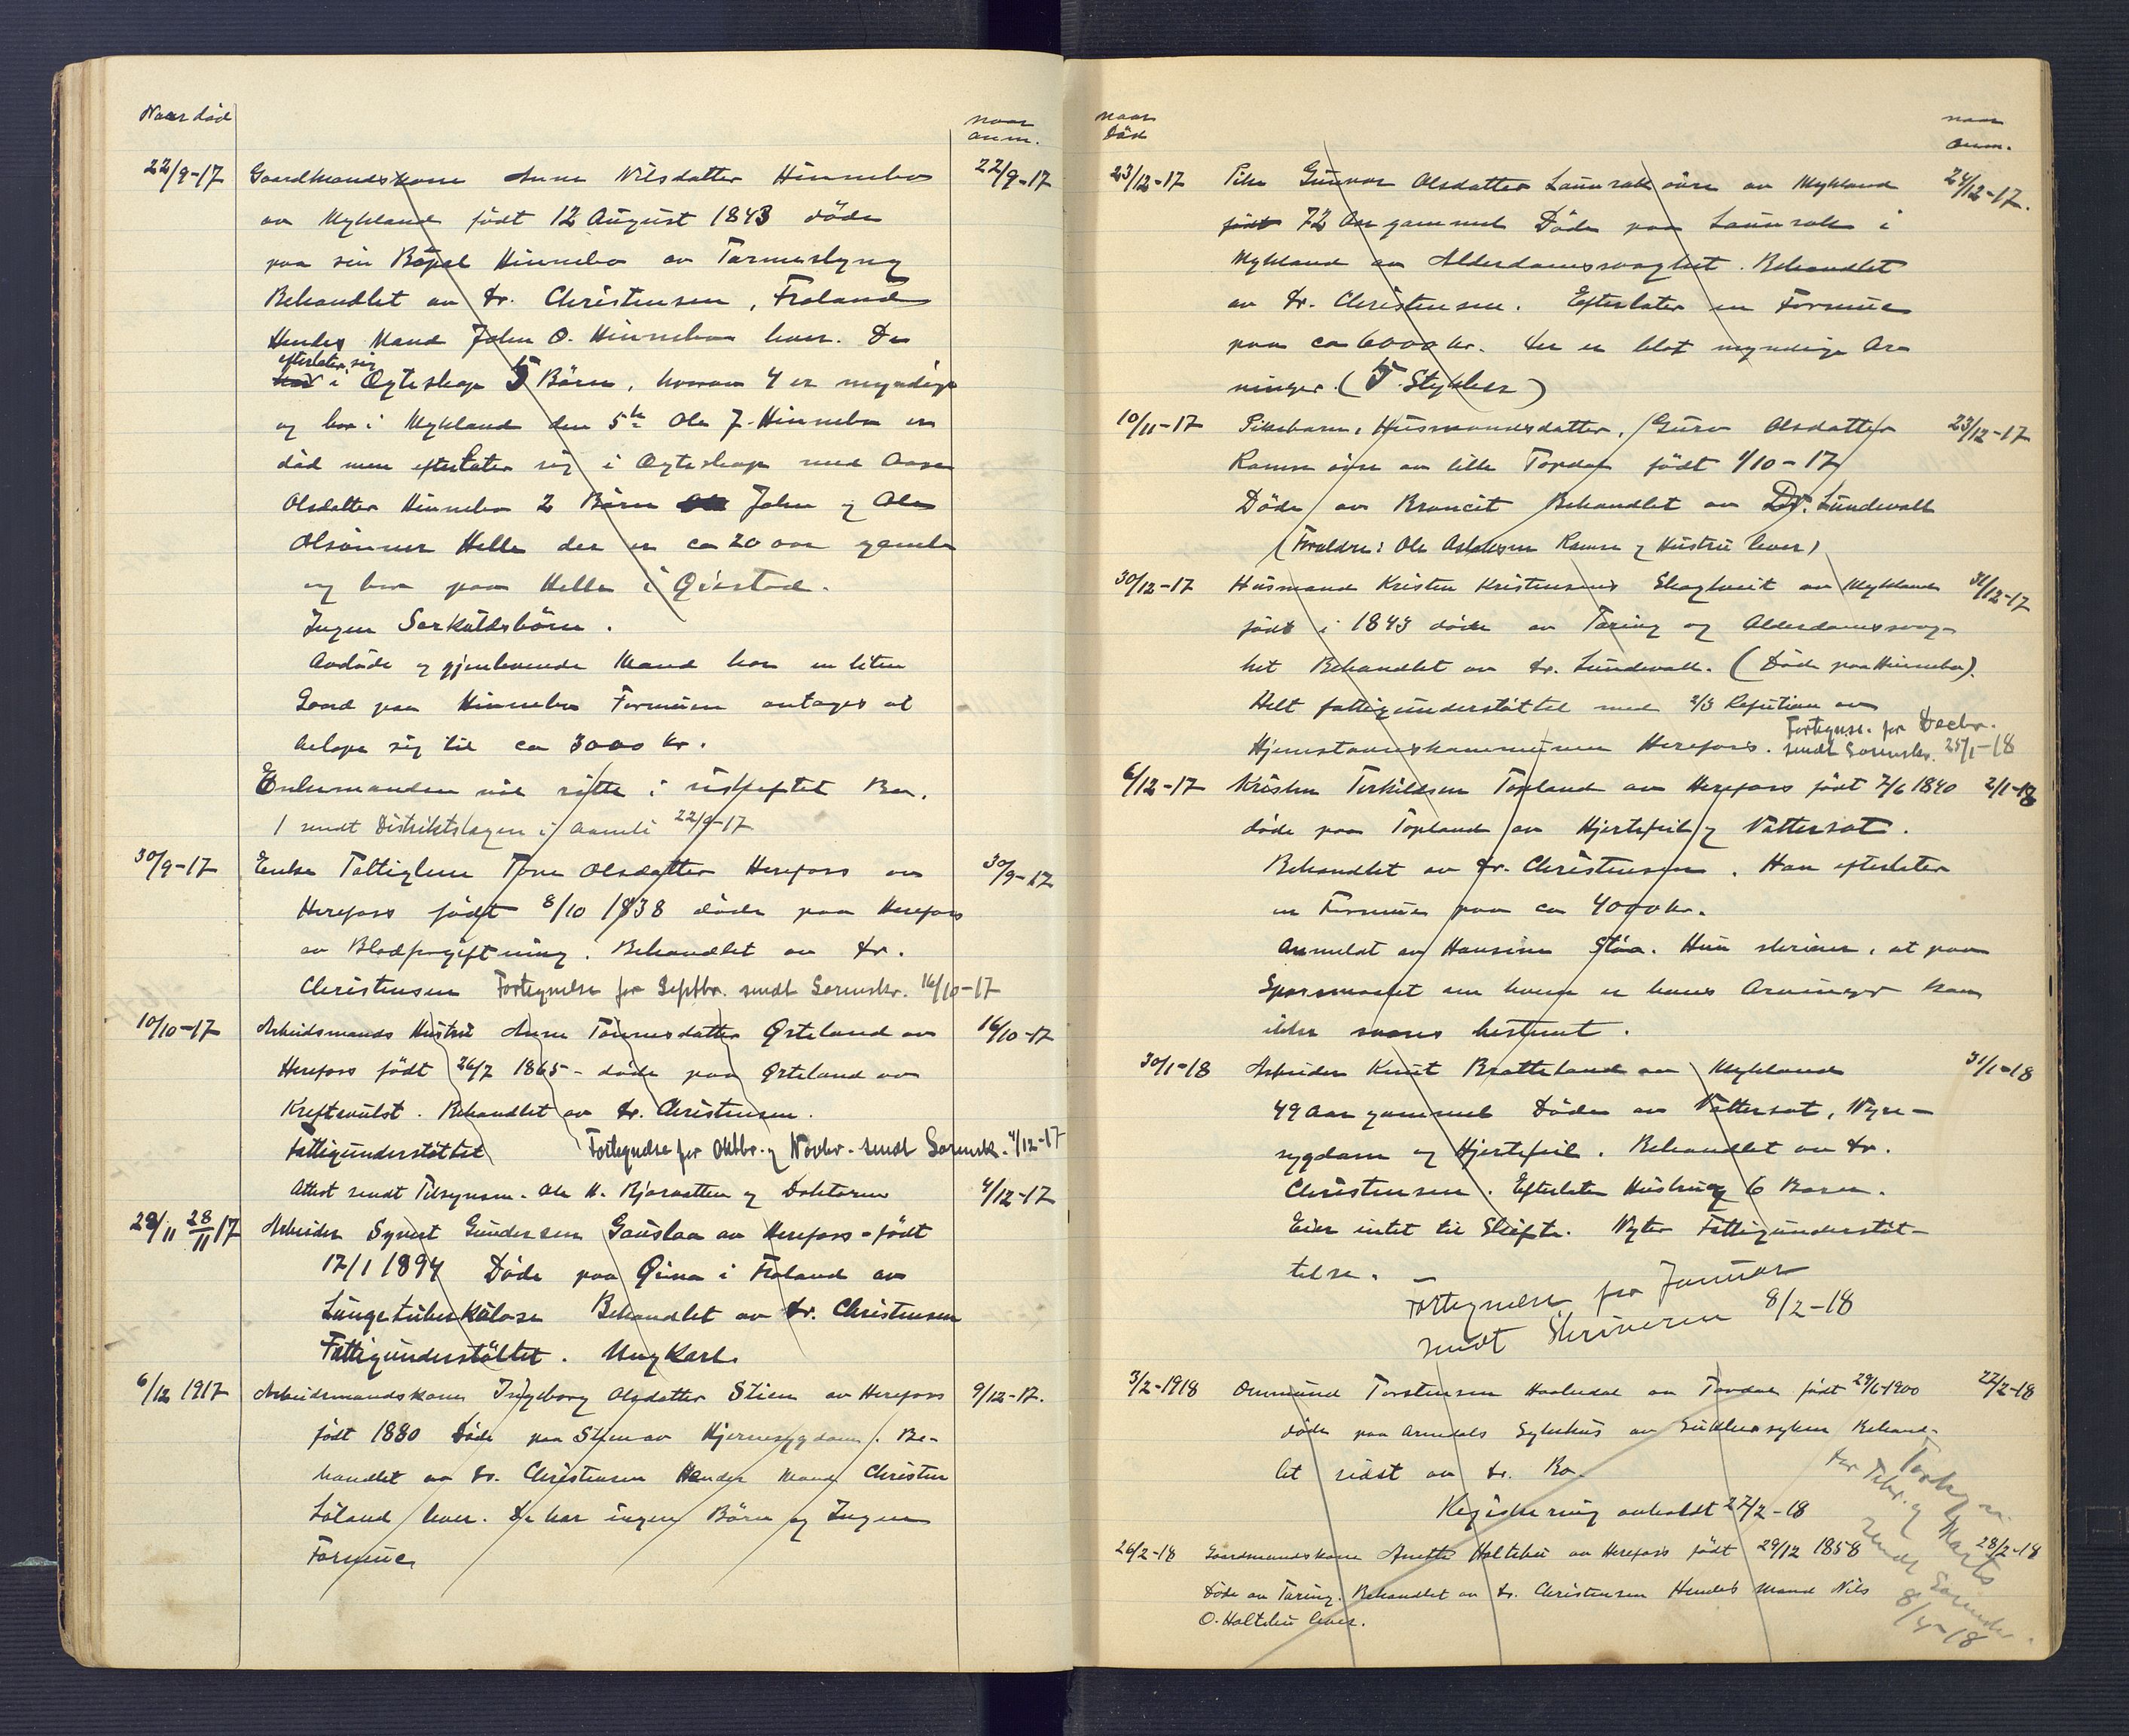 Naar död
naar
anm.
22/9-17 Gaardmandskone Anne Nilsdatter Hinnebo 22/9-17
av Mykland født 12 August 1843 döde
paa sin Böpæl Hinnebo av Tarmslyng
Behandlet av Dr. Christensen, Froland
Hendes Mand John O. Hinnebo lever. De
efterlater sig
i Ægteskap 5 Börn, hvorav 4 er myndige
og bor i Mykland den 5te Ole J. Hinnebo er
død men efterlater sig i Ægteskap med Aase
Olsdatter Hinnebo 2 Börn John og Ole
Olsönner Helle der er ca 20 aar gamle
og bor paa Helle i Gjøvstad.
Ingen Særkuldsbörn.
Avdöde og gjenlevende Mand har en liten
Gaard paa Hinnebo Formuen antages at
belöpe sig til ca 3000 Kr.
Enkemanden vil sitte i uskiftet Bo.
1 sendt Distriktslægen i Aamli 22/9-17
30/9-17 Enke Fattiglem Tone Olsdatter Herefoss av 30/9-17
Herefoss födt 8/10 1838 döde paa Herefoss
av Blodforgiftning. Behandlet av Dr.
Christensen Fortegnelse for Septbr. sendt Sorenskr. 16/10-17
10/10-17 Arbeidsmands Hustru Anne Tönnesdatter Örteland av 16/10-17
Herefoss födt 26/7 1865 - döde paa Örteland av
Kreftsvulst. Behandlet av Dr. Christensen.
Fattigunderstöttet Fortegnelse for Oktbr. og Novbr. sendt Sorensk. 4/12-17
Attest sendt Tilsynsm. Ole H. Bjorvatten og Doktoren 4/12-17
28/11 28/11 17 Arbeider Syvert Gundersen Gauslaa av Herefoss - født
17/1 1894 Döde paa i Froland av
Lungetuberkulose Behandlet av Dr. Christensen
Fattigunderstöttet. Ungkarl.
6/12 1917 Arbeidsmandskone Ingeborg Olsdatter Stien av Herefoss 9/12-17.
født 1880 Döde paa Stien av Hjernesygdom. Be-
handlet av Dr. Christensen Hendes Mand Christen
Löland lever. De har ingen Börn og Ingen
Formue
naar
död
naar
anm.
23/12-17 Pike Gunvor Olsdatter Laurak övre av Mykland 24/12-17.
født 72 Aar gammel Döde paa Laurak i
Mykland av Alderdomssvaghet. Behandlet
av Dr. Christensen. Efterlater en Formue
paa ca 6000 kr. Der er blot myndige Ar-
vinger. (5 Stykker)
10/11-17 Pikebarn, Husmandsdatter, Guro Olsdatter 23/12-17
Ramse övre av lille Topdal födt 1/10-17
Döde av Broncit Behandlet av Dr. Lundevall
(Foreldre: Ole Aslaksen Ramse og Hustru lever)
30/12-17 Husmand Kristen Kristensens Skogtveit av Mykland 31/12-17
født i 1843 döde av Tæring og Alderdomssvag-
het Behandlet av Dr. Lundevall. (Döde paa Hinnebo).
Helt fattigunderstöttet med 2/3 Refution av
Hjemstavnskommunen Herefoss. Fortegnse. for Decbr.
sendt Sorenskr. 25/1-18
6/12-17 Kristen Terkildsen Topland av Herefoss født 7/6 1840 2/1-18
döde paa Topland av Hjertefeil og Vattersot.
Behandlet av Dr. Christensen. Han efterlater
en Formue paa ca 4000 kr.
Anmeldt av Hansine Stöa. Hun skriver, at paa
Spörsmaalet om hvem er hans Arvinger kan
ikke svares bestemt.
30/1-18 Arbeider Knut Bratteland av Mykland 31/1-18
49 Aar gammel Döde av Vattersot, Nyre-
sygdom og Hjertefeil. Behandlet av Dr.
Christensen. Efterlater Hustru og 6 Barn.
Eier intet til Skifte. Nyter Fattigunderstöt-
telse.
Fortegnelse for Januar
sendt Skriveren 8/2-18
3/2-1918 Ommund Torstensen Haaledal av Tovdal født 29/6 1900 22/2-18
döde paa Arendals Sykehus av Sukkersyken Behand-
let sidst av Dr. Bo.
Registrering avholdt 27/2-18
26/2-18 Gaardmandskone Anette Holtebu av Herefoss født 29/12 1858 28/2-18
Döde av Tæring. Behandlet av Dr. Christensen Hendes Mand Nils
O. Holtebu lever.
for Febr. og Marts
sendt Sorenskr.
8/4-18